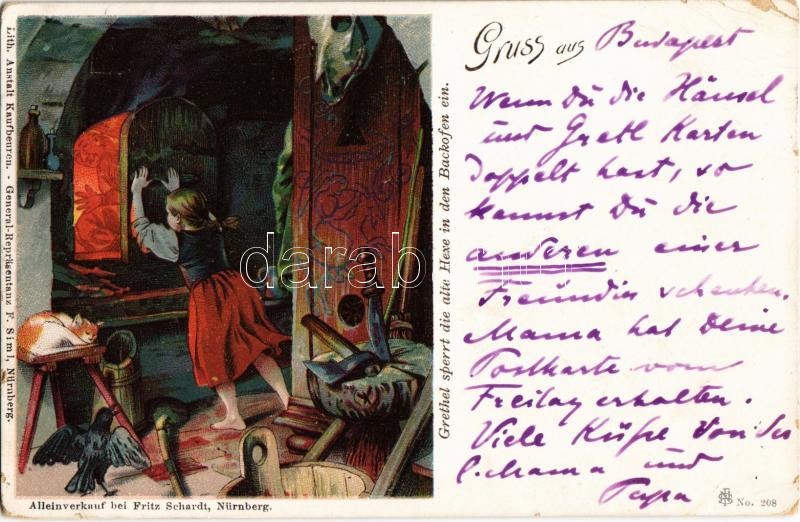 Lith. Anstalt Kaufbeuren. - General-Repräsentanz F. Siml, Nürnberg.
Alleinverkauf bei Fritz Schardt, Nürnberg.
Grethel sperrt die alte Hexe in den Backofen ein.
darab
Gruss aus Budapest
Wenn Du die Hänsel
und Gretl Karten
doppelt hast, so
kannst Du die
anderen einer
Freundin schenken.
Mama hat Deine
Postkarte vom
Freitag erhalten.
Viele Küße von
Mama und
Papa
No. 208